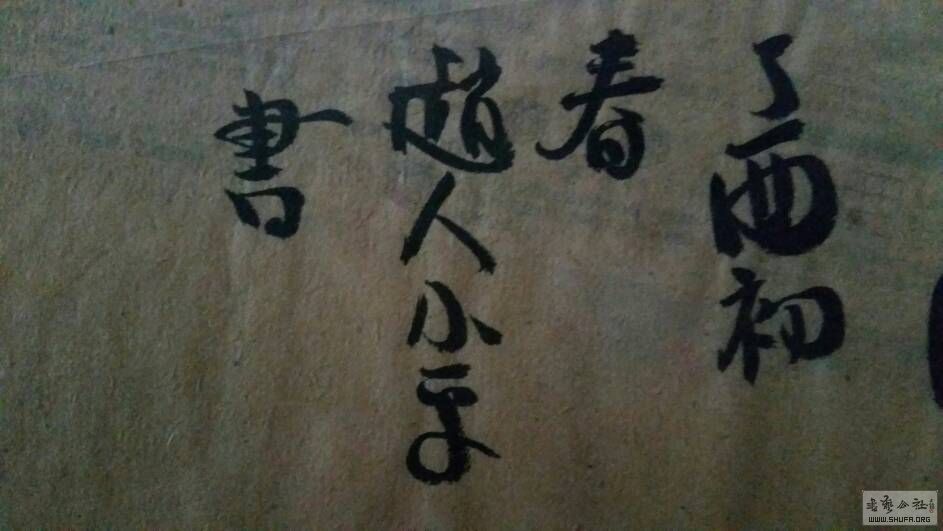 丁酉初
春
趙人小平
書
书艺公社
WWW.SHUFA.ORG